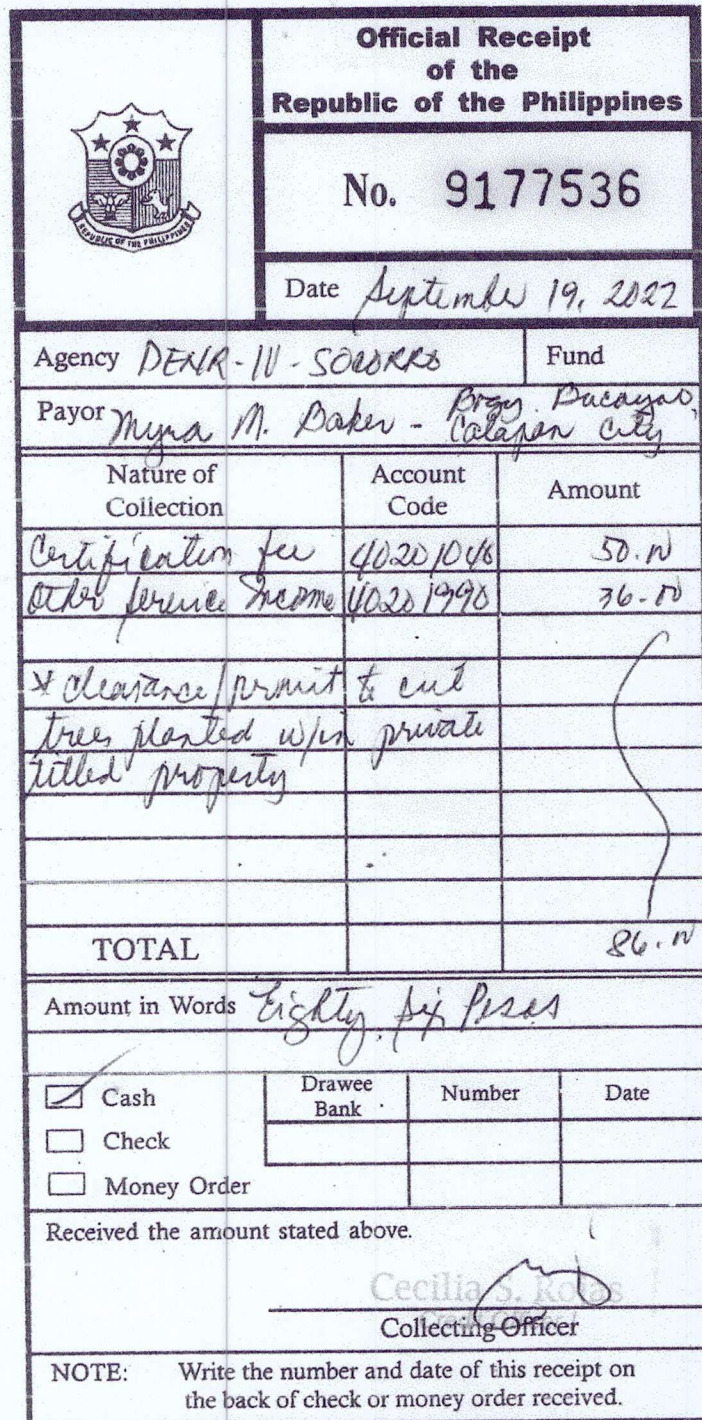 Official Receipt
of the
Republic of the Philippines
REPUBLIC OF THE PHILIPPINES
No. 9177536
Date September 19, 2022
Agency DENR-IV-SOCORRO Fund
Payor Myra M. Baker - Brgy. Bucayao,
Calapan City
Nature of Collection Account Code Amount
Certification fee 40201040 50.00
Other Service Income 40201990 36.00
* clearance/permit to cut
trees planted w/in private
titled property
TOTAL 86.00
Amount in Words Eighty six Pesos
Cash Drawee Bank Number Date
Check
Money Order
Received the amount stated above.
Cecilia S. Rojas
Collecting Officer
NOTE: Write the number and date of this receipt on
the back of check or money order received.